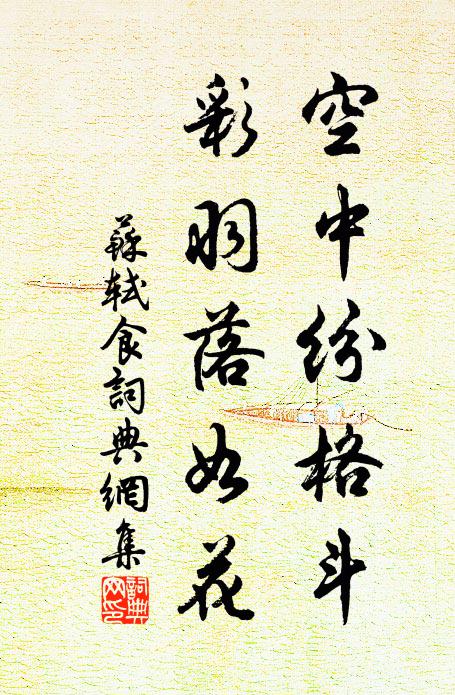 空中紛格斗
彩羽落如花
蘇軾食詞典網集
詞典
网印